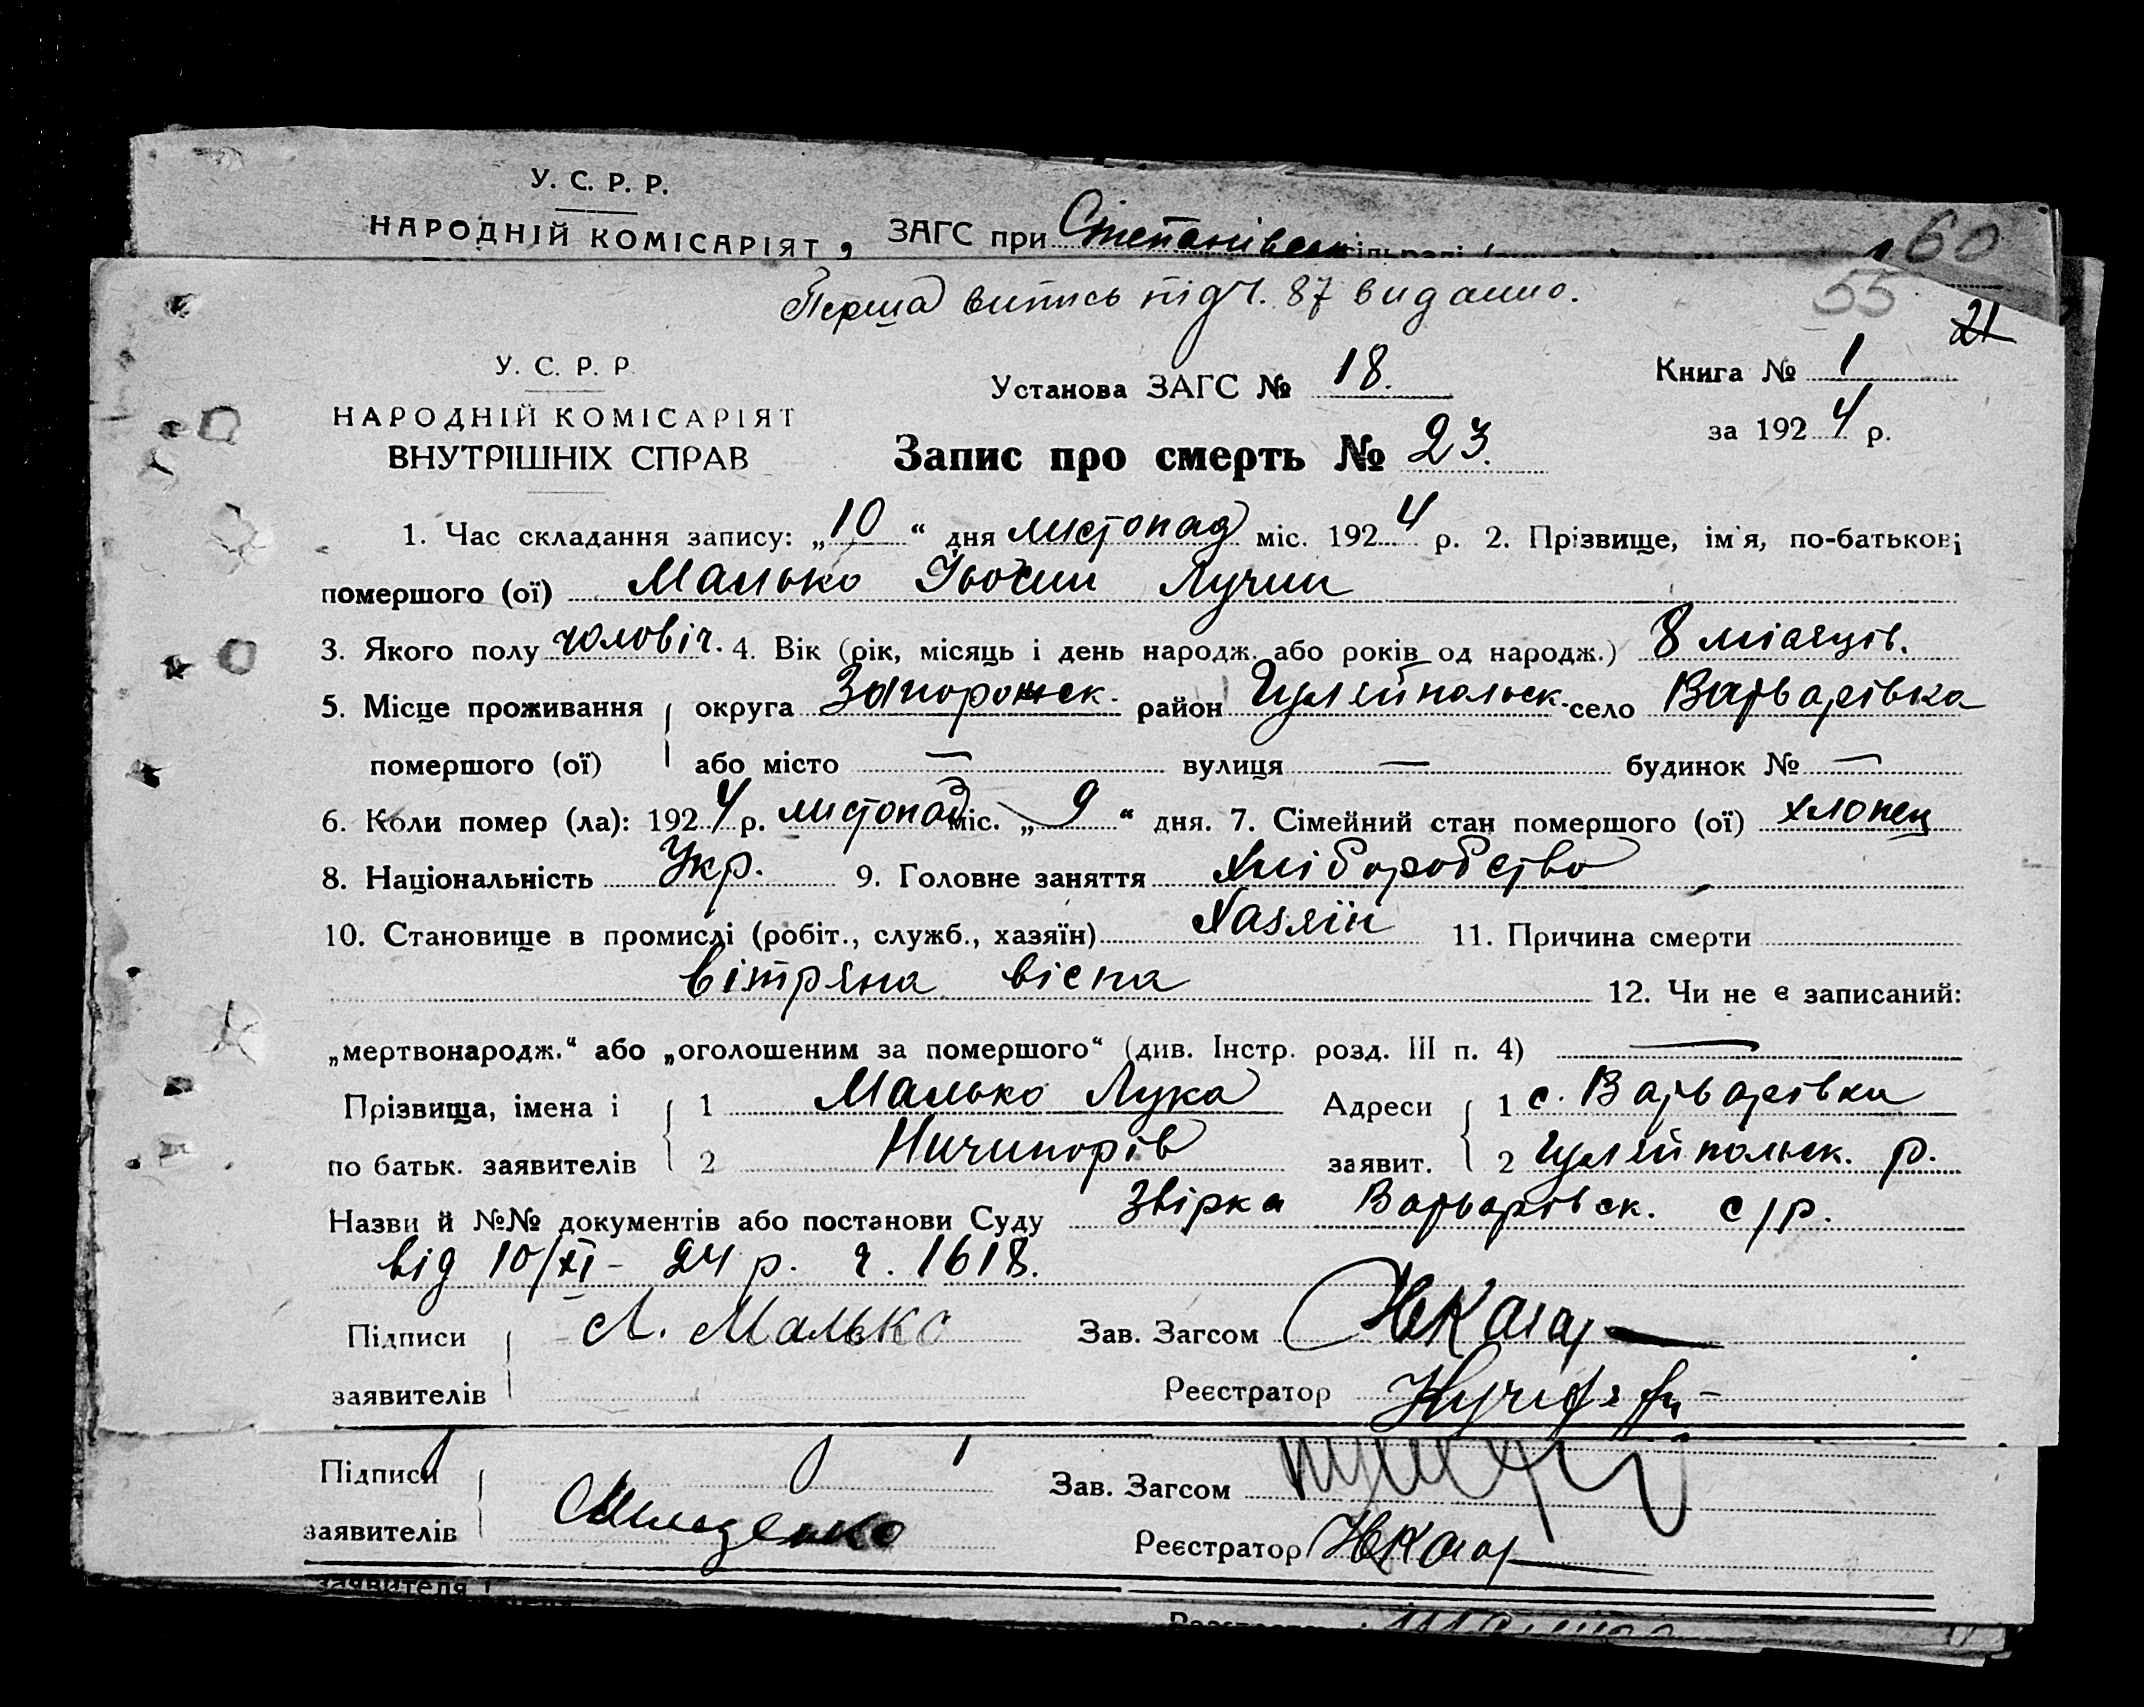 У. С. Р. Р.
НАРОДНІЙ КОМІСАРІЯТ, ЗАГС при Степанівськ
60
Перша випись під ч. 87 видано.
55
21
У. С. Р. Р.
НАРОДНІЙ КОМІСАРІЯТ
ВНУТРІШНІХ СПРАВ
Установа ЗАГС № 18.
Книга № 1
за 1924 р.
Запис про смерть № 23.
1. Час складання запису: „10“ дня листопад міс. 1924 р. 2. Прізвище, ім'я, по-батькові
помершого (ої) Малько Лучин
3. Якого полу чоловіч. 4. Вік (рік, місяць і день народж. або років од народж.) 8 місяців.
5. Місце проживання округа Запорожск. район Гуляйпольск. село Варварівка
помершого (ої) або місто — вулиця — будинок № —
6. Коли помер (ла): 1924 р. листопад міс. „9“ дня. 7. Сімейний стан помершого (ої) хлопец
8. Національність Укр. 9. Головне заняття Хліборобство
10. Становище в промислі (робіт., служб., хазяїн) Хазяїн 11. Причина смерти
вітряна віспа 12. Чи не є записаний:
„мертвонародж.“ або „оголошеним за помершого“ (див. Інстр. розд. III п. 4) —
Прізвища, імена і 1 Малько Лука Адреси 1 с. Варварівки
по батьк. заявителів 2 Ничипорів заявит. 2 Гуляйпольск. р.
Назви й №№ документів або постанови Суду Звірка Варварівск. с/р.
від 10/XI - 24 р. ч. 1618.
Підписи Л. Малько Зав. Загсом
заявителів Реєстратор
Підписи Зав. Загсом
заявителів Реєстратор
заявителя